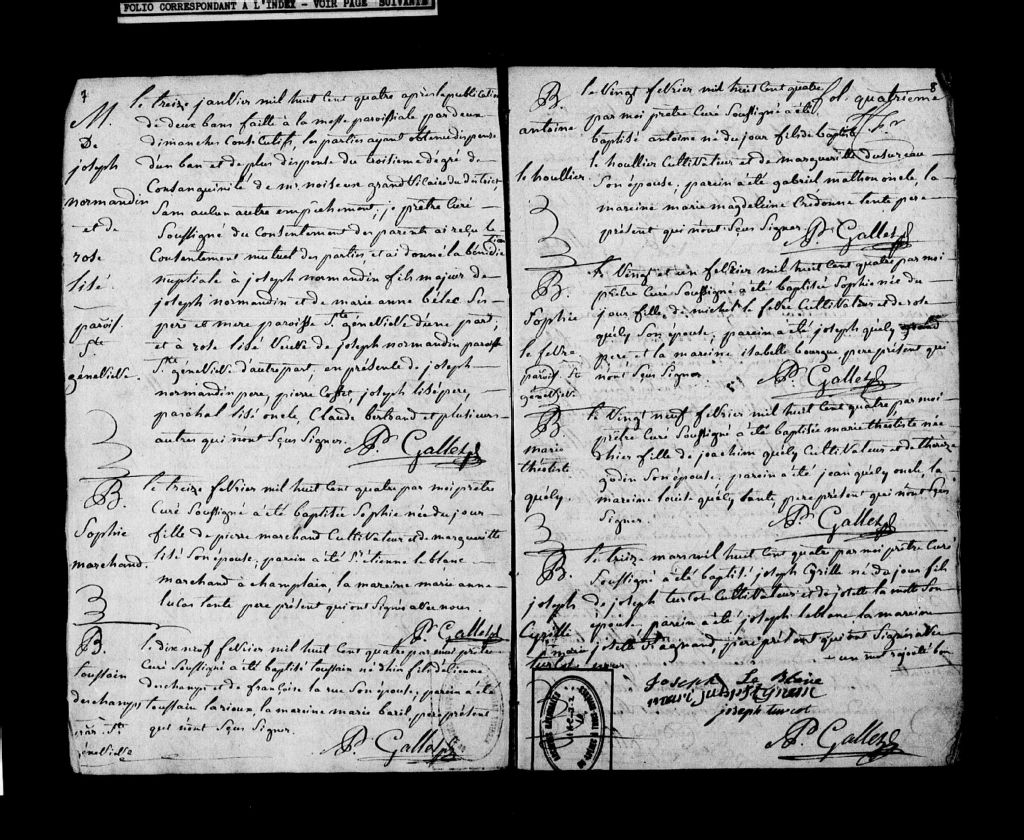 FOLIO CORRESPONDANT A L'INDEX - VOIR PAGE SUIVANTE
7
M.
De
joseph
normandin
et de
rose
lisé
parois.
Ste
géneviève.
le treize janvier mil huit cent quatre après la publication
de deux bans faitte à la messe paroissiale par deux
dimanches consécutifs, les parties ayant obtenu dispense
d'un ban et de plus dispense du troisieme dégré de
Consanguinité de mr. noiseux grand vicaire du district,
sans aucun autre empêchement, je prêtre Curé
soussigné du Consentement des parents ai reçu le
Consentement mutuel des parties, et ai donné la bénédiction
nuptiale à joseph normandin fils majeur de
joseph normandin et de marie anne bélec ses
pere et mere paroisse Ste géneviève d'une part,
et à rose lisé veuve de joseph normandin paroisse
Ste géneviève d'autre part, en présence de joseph
normandin pere, pierre Cosset, joseph lisé pere,
paschal lisé oncle, Claude bertrand et plusieurs
autres qui n'ont sçus signer. Pr. Gallet
B.
Sophie
marchand.
le treize fevrier mil huit Cent quatre par moi prêtre
Curé soussigné a été baptisée Sophie née du jour
fille de pierre marchand Cultivateur et de margueritte
lisé Son épouse, parein a été Sr. étienne le blanc
marchand à champlain, la mareine marie anne
lucas tante pere présent qui ont signés avec nous.
Pr. Gallet
B.
toussain
deschamps
paroi. Ste
géneviève
le dix neuf fevrier mil huit Cent quatre par moi prêtre
Curé soussigné a été baptisé toussain né d'hier fils d'étienne
deschamps et de françoise la rue Son épouse, parein a été
toussain la rioux la mareine marie baril, pere présent
qui n'ont sçus signer.
Pr. Gallet
8
fol. quatrieme
B.
antoine
le houllier
le vingt fevrier mil huit Cent quatre
par moi prêtre Curé soussigné a été
baptisé antoine né du jour fils de baptiste
le houllier Cultivateur et de margueritte dusureau
Son épouse, parein a été gabriel mathon oncle, la
mareine marie magdeleine Credonne tante, pere
présent qui n'ont sçus signer. Pr. Gallet
B.
Sophie
le febvre
parois. Ste
géneviève
le vingt et un fevrier mil huit Cent quatre par moi
prêtre Curé soussigné a été baptisée Sophie née du
jour fille de michel le febvre Cultivateur et de rose
quély Son épouse, parein a été joseph quély grand
pere et la mareine isabelle bourque pere présent qui
n'ont sçus signer. Pr. Gallet
B
marie
théotiste
quély.
le vingt neuf fevrier mil huit Cent quatre par moi
prêtre Curé soussigné a été baptisée marie théotiste née
d'hier fille de joachim quély Cultivateur et de thérèze
godin Son épouse, parein a été jean quély oncle, la
mareine louise quély tante, pere présent qui n'ont sçus
signer.
Pr. Gallet
B.
joseph
Cyrille
turcot
le treize mars mil huit Cent quatre par moi prêtre Curé
soussigné a été baptisé joseph Cyrille né du jour fils
de joseph turcot Cultivateur et de josette la motte Son
épouse, parein a été joseph leblanc la mareine
marie josette St. agnand, pere présent qui ont signés avec
un mot rejetté bon
joseph Le Blanc
joseph turcot
Pr. Gallet